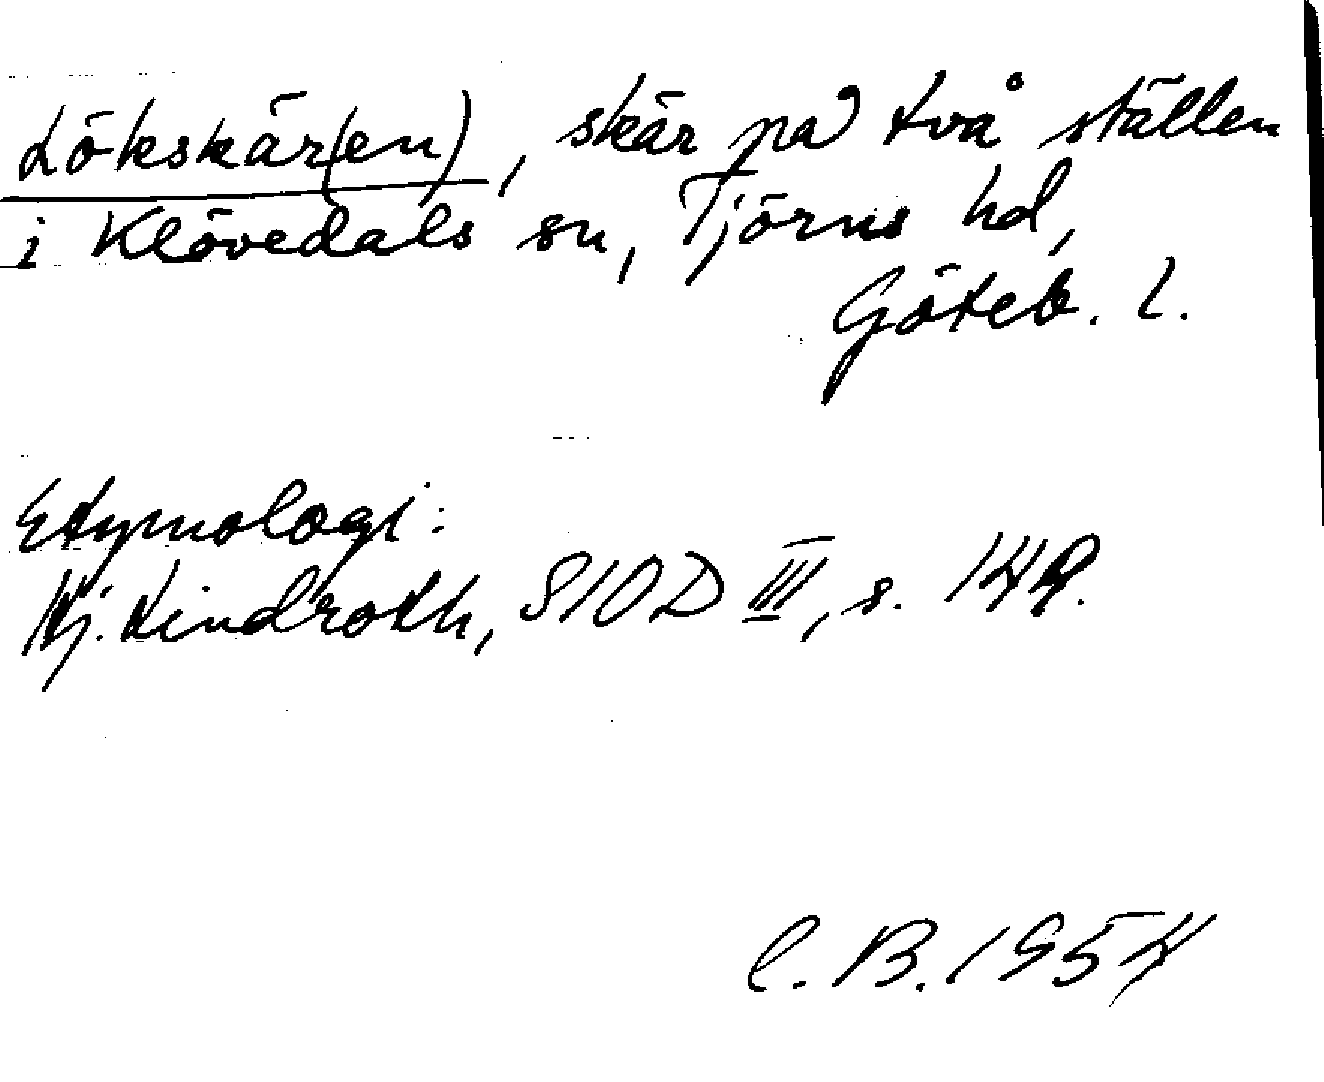 Lökskär(en), skär på två ställen
i Klövedals sn, Tjörns hd,
Göteb. l.
Etymologi:
Hj. Lindroth, SIOD III, s. 149.
C. B. 1954